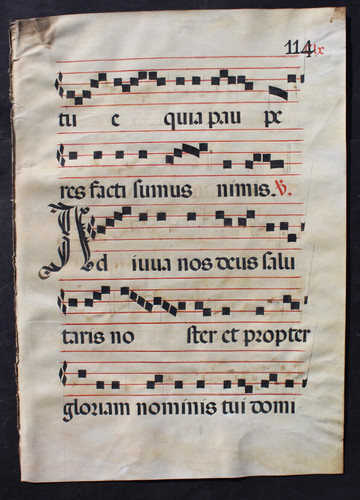 114 lx
tu e quia pau pe
res facti sumus nimis. V.
Ad iuua nos deus salu
taris no ster et propter
gloriam nominis tui domi